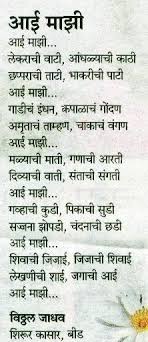 आई माझी
आई माझी...
लेकराची वाटी, आंधळ्याची काठी
छप्पराची ताटी, भाकरीची पाटी
आई माझी...
गाडीचं इंधन, कपाळाचं गोंदण
अमृताचं ताम्हण, चाकाचं वंगण
आई माझी...
मळ्याची माती, गणाची आरती
दिव्याची वाती, संताची संगती
आई माझी...
गव्हाची कुडी, पिकाची सुडी
सज्जना झोपडी, चंदनाची छडी
आई माझी...
शिवाची जिजाई, जिजाची शिवाई
लेखणीची शाई, जगाची आई
आई माझी...
विठ्ठल जाधव
शिरूर कासार, बीड